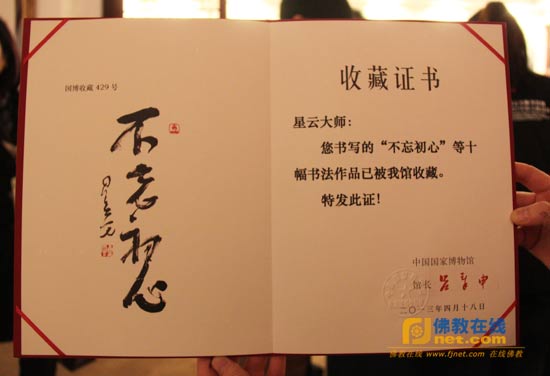 国博收藏429号
不忘初心
星云
收藏证书
星云大师：
您书写的“不忘初心”等十
幅书法作品已被我馆收藏。
特发此证！
中国国家博物馆
馆长 吕章申
二〇一三年四月十八日
佛教在线
.net
佛教在线 www.fjnet.com 在线佛教